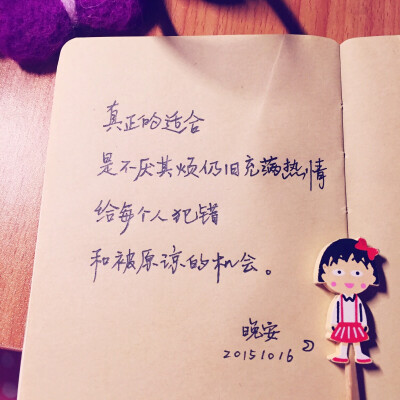 真正的适合
是不厌其烦仍旧充满热情
给每个人犯错
和被原谅的机会。
晚安
20151016